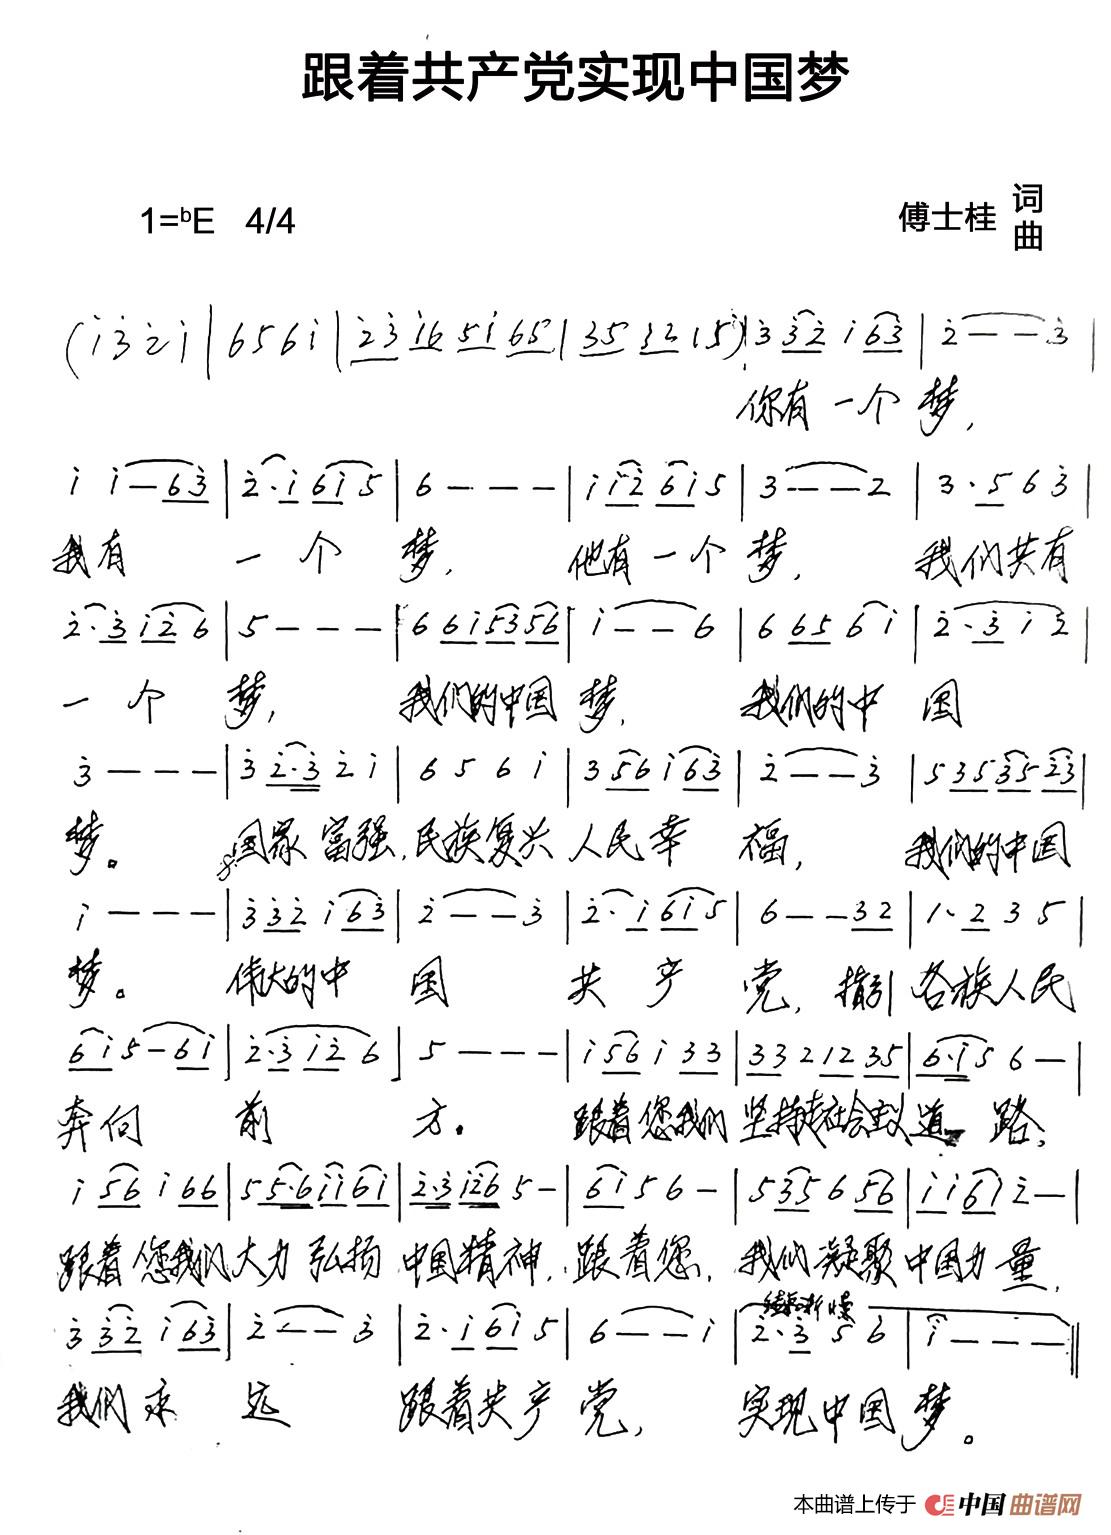 跟着共产党实现中国梦
1=ᵇE 4/4
傅士桂 词曲
(i̇ 3̇ 2̇ i̇ | 6 5 6 i̇ | 2̇ 3̇ i̇ 6 5 i̇ 6 5 | 3 5 3 2 1 5) | 3̇ 3̇ 2̇ i̇ 6 3̇ | 2̇ — — 3̇ |
你有一个梦，
i̇ i̇ — 6 3̇ | 2̇ · i̇ 6 i̇ 5 | 6 — — — | i̇ i̇ 2̇ 6 i̇ 5 | 3 — — 2 | 3 · 5 6 3̇ |
我有 一个 梦， 他有一个梦， 我们共有
2̇ · 3̇ i̇ 2̇ 6 | 5 — — — | 6 6 i̇ 5 3 5 6 | i̇ — — 6 | 6 6 5 6 i̇ | 2̇ · 3̇ i̇ 2̇ |
一个 梦， 我们的中国梦， 我们的中 国
3̇ — — — | 3̇ 2̇ · 3̇ 2̇ i̇ | 6 5 6 i̇ | 3 5 6 i̇ 6 3̇ | 2̇ — — 3̇ | 5 3 5 3̇ 5 2̇ 3̇ |
梦。 国家富强，民族复兴 人民幸 福， 我们的中国
i̇ — — — | 3̇ 3̇ 2̇ i̇ 6 3̇ | 2̇ — — 3̇ | 2̇ · i̇ 6 i̇ 5 | 6 — — 3 2 | 1 · 2 3 5 |
梦。 伟大的中 国 共 产 党，指引 各族人民
6 i̇ 5 — 6 i̇ | 2̇ · 3̇ i̇ 2̇ 6 | 5 — — — | i̇ 5 6 i̇ 3 3 | 3 3 2 1 2 3 5 | 6 · i̇ 5 6 — |
奔向 前 方。 跟着您我们 坚持走社会主义道 路，
i̇ 5 6 i̇ 6 6 | 5 5 · 6 i̇ i̇ 6 i̇ | 2̇ · 3̇ i̇ 2̇ 6 5 — | 6 i̇ 5 6 — | 5 3 5 6 5 6 | i̇ i̇ 6 i̇ 2̇ — |
跟着您我们大力弘扬 中国精神，跟着您，我们凝聚中国力量，
3̇ 3̇ 2̇ i̇ 6 3̇ | 2̇ — — 3̇ | 2̇ · i̇ 6 i̇ 5 | 6 — — i̇ | 2̇ · 3̇ 5 6 | i̇ — — — ‖
我们永 远 跟着共产 党， 实现中国 梦。
本曲谱上传于 中国曲谱网